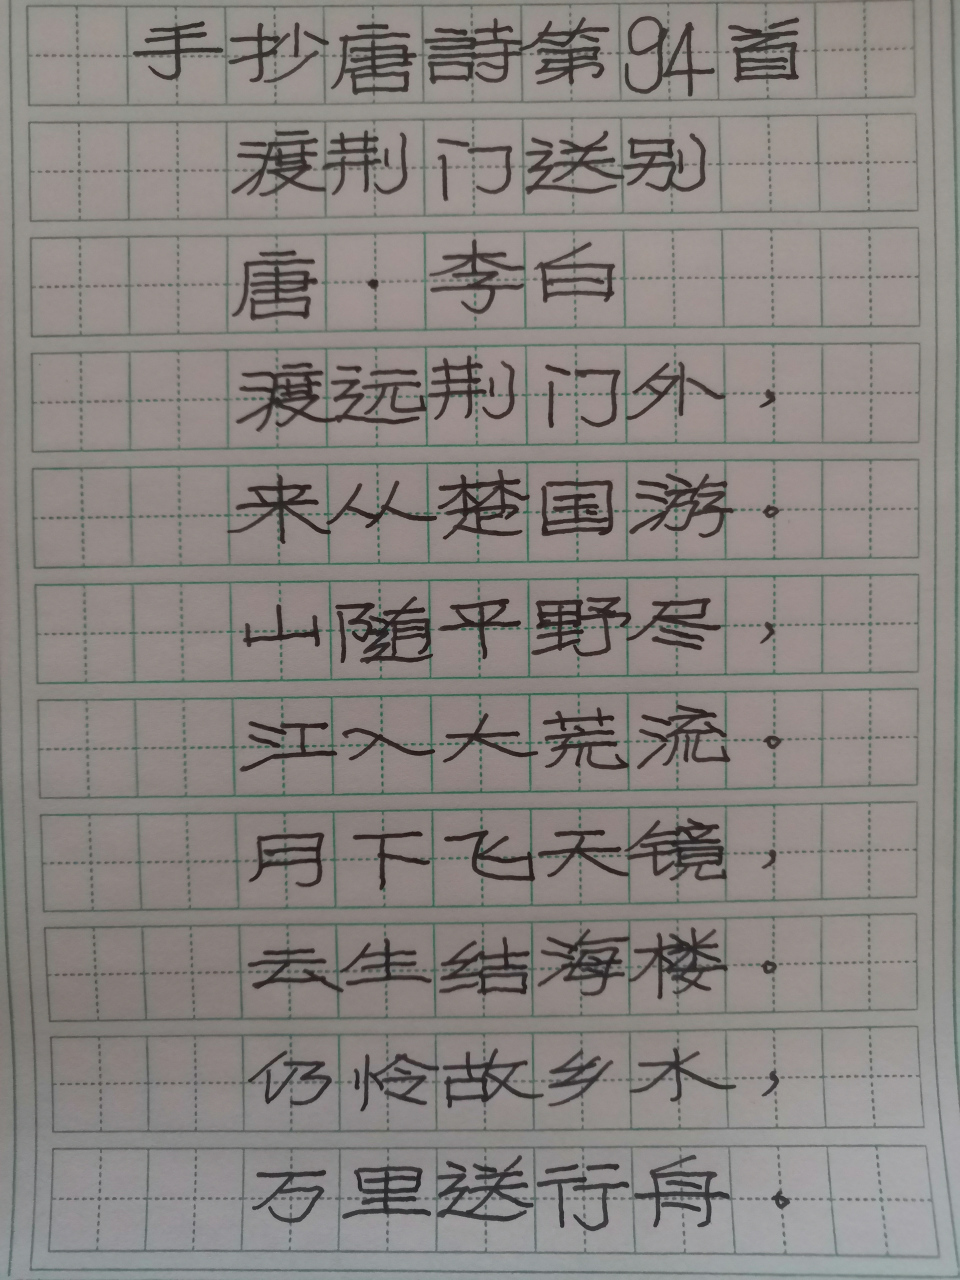 手抄唐詩第94首
渡荆门送别
唐·李白
渡远荆门外，
来从楚国游。
山随平野尽，
江入大荒流。
月下飞天镜，
云生结海楼。
仍怜故乡水，
万里送行舟.